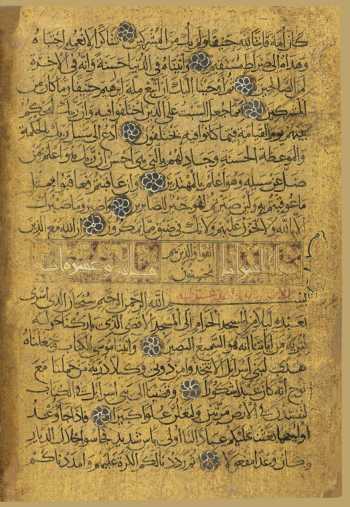 كان أمة قانتا لله حنيفا ولم يك من المشركين شاكرا لأنعمه اجتباه
وهداه إلى صراط مستقيم وآتيناه في الدنيا حسنة وإنه في الآخرة
لمن الصالحين ثم أوحينا إليك أن اتبع ملة إبراهيم حنيفا وما كان من
المشركين إنما جعل السبت على الذين اختلفوا فيه وإن ربك ليحكم
بينهم يوم القيامة فيما كانوا فيه يختلفون ادع إلى سبيل ربك بالحكمة
والموعظة الحسنة وجادلهم بالتي هي أحسن إن ربك هو أعلم بمن
ضل عن سبيله وهو أعلم بالمهتدين وإن عاقبتم فعاقبوا بمثل
ما عوقبتم به ولئن صبرتم لهو خير للصابرين واصبر وما صبرك
إلا بالله ولا تحزن عليهم ولا تك في ضيق مما يمكرون إن الله مع الذين
اتقوا والذين هم
محسنون
بسم الله الرحمن الرحيم سبحان الذي أسرى
بعبده ليلا من المسجد الحرام إلى المسجد الأقصى الذي باركنا حوله
لنريه من آياتنا إنه هو السميع البصير وآتينا موسى الكتاب وجعلناه
هدى لبني إسرائيل ألا تتخذوا من دوني وكيلا ذرية من حملنا مع
نوح إنه كان عبدا شكورا وقضينا إلى بني إسرائيل في الكتاب
لتفسدن في الأرض مرتين ولتعلن علوا كبيرا فإذا جاء وعد
أولاهما بعثنا عليكم عبادا لنا أولي بأس شديد فجاسوا خلال الديار
وكان وعدا مفعولا ثم رددنا لكم الكرة عليهم وأمددناكم